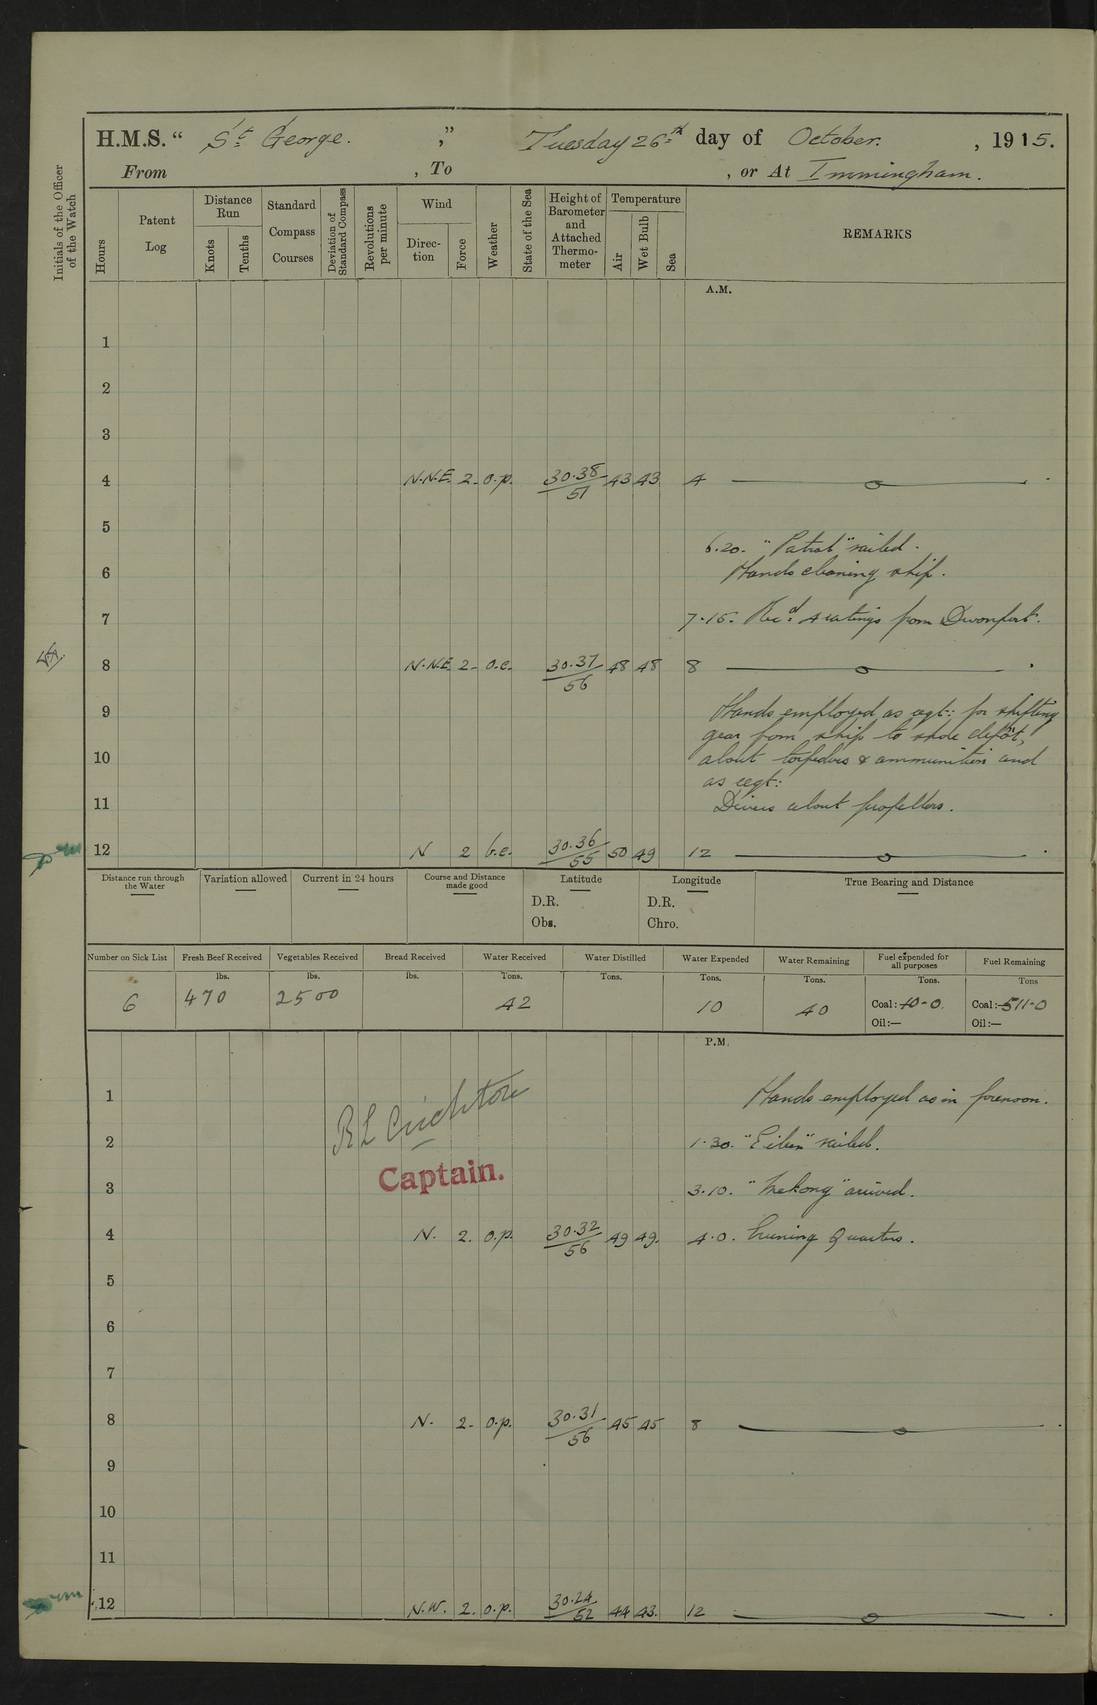 H.M.S. “ St George. ” Tuesday 26th day of October. , 1915.
From , To , or At Immingham.
Initials of the Officer of the Watch
Hours
Patent Log
Distance Run
Knots
Tenths
Standard Compass Courses
Deviation of Standard Compass
Revolutions per minute
Wind
Direc- tion
Force
Weather
State of the Sea
Height of Barometer and Attached Thermo- meter
Temperature
Air
Wet Bulb
Sea
REMARKS
A.M.
1
2
3
4 N.N.E. 2. o.p. 30.38/51 43 43 4
5
6.20. "Patrol" sailed.
6 Hands cleaning ship.
7 7.15. Recd. 4 ratings from Devonport.
8 N.N.E. 2. o.c. 30.37/56 48 48 8
9 Hands employed as reqt: for shifting
gear from ship to shore depôt,
10 about torpedoes & ammunition and
as reqt:
11 Divers about propellers.
12 N 2 b.c. 30.36/55 50 49 12
Distance run through the Water
Variation allowed
Current in 24 hours
Course and Distance made good
Latitude
D.R.
Obs.
Longitude
D.R.
Chro.
True Bearing and Distance
Number on Sick List
Fresh Beef Received
Vegetables Received
Bread Received
Water Received
Water Distilled
Water Expended
Water Remaining
Fuel expended for all purposes
Fuel Remaining
lbs. lbs. lbs. Tons. Tons. Tons. Tons. Tons. Tons
6 470 2500 42 10 40 Coal:—10-0. Coal:—511-0
Oil:— Oil:—
P.M.
1 Hands employed as in forenoon.
R L Crichton
2 1.30. sailed.
Captain.
3 3.10. "Mekong" arrived.
4 N. 2. o.p. 30.32/56 49 49. 4.0. Evening Quarters.
5
6
7
8 N. 2. o.p. 30.31/56 45 45 8
9
10
11
12 N.W. 2. o.p. 30.24/52 44 43. 12